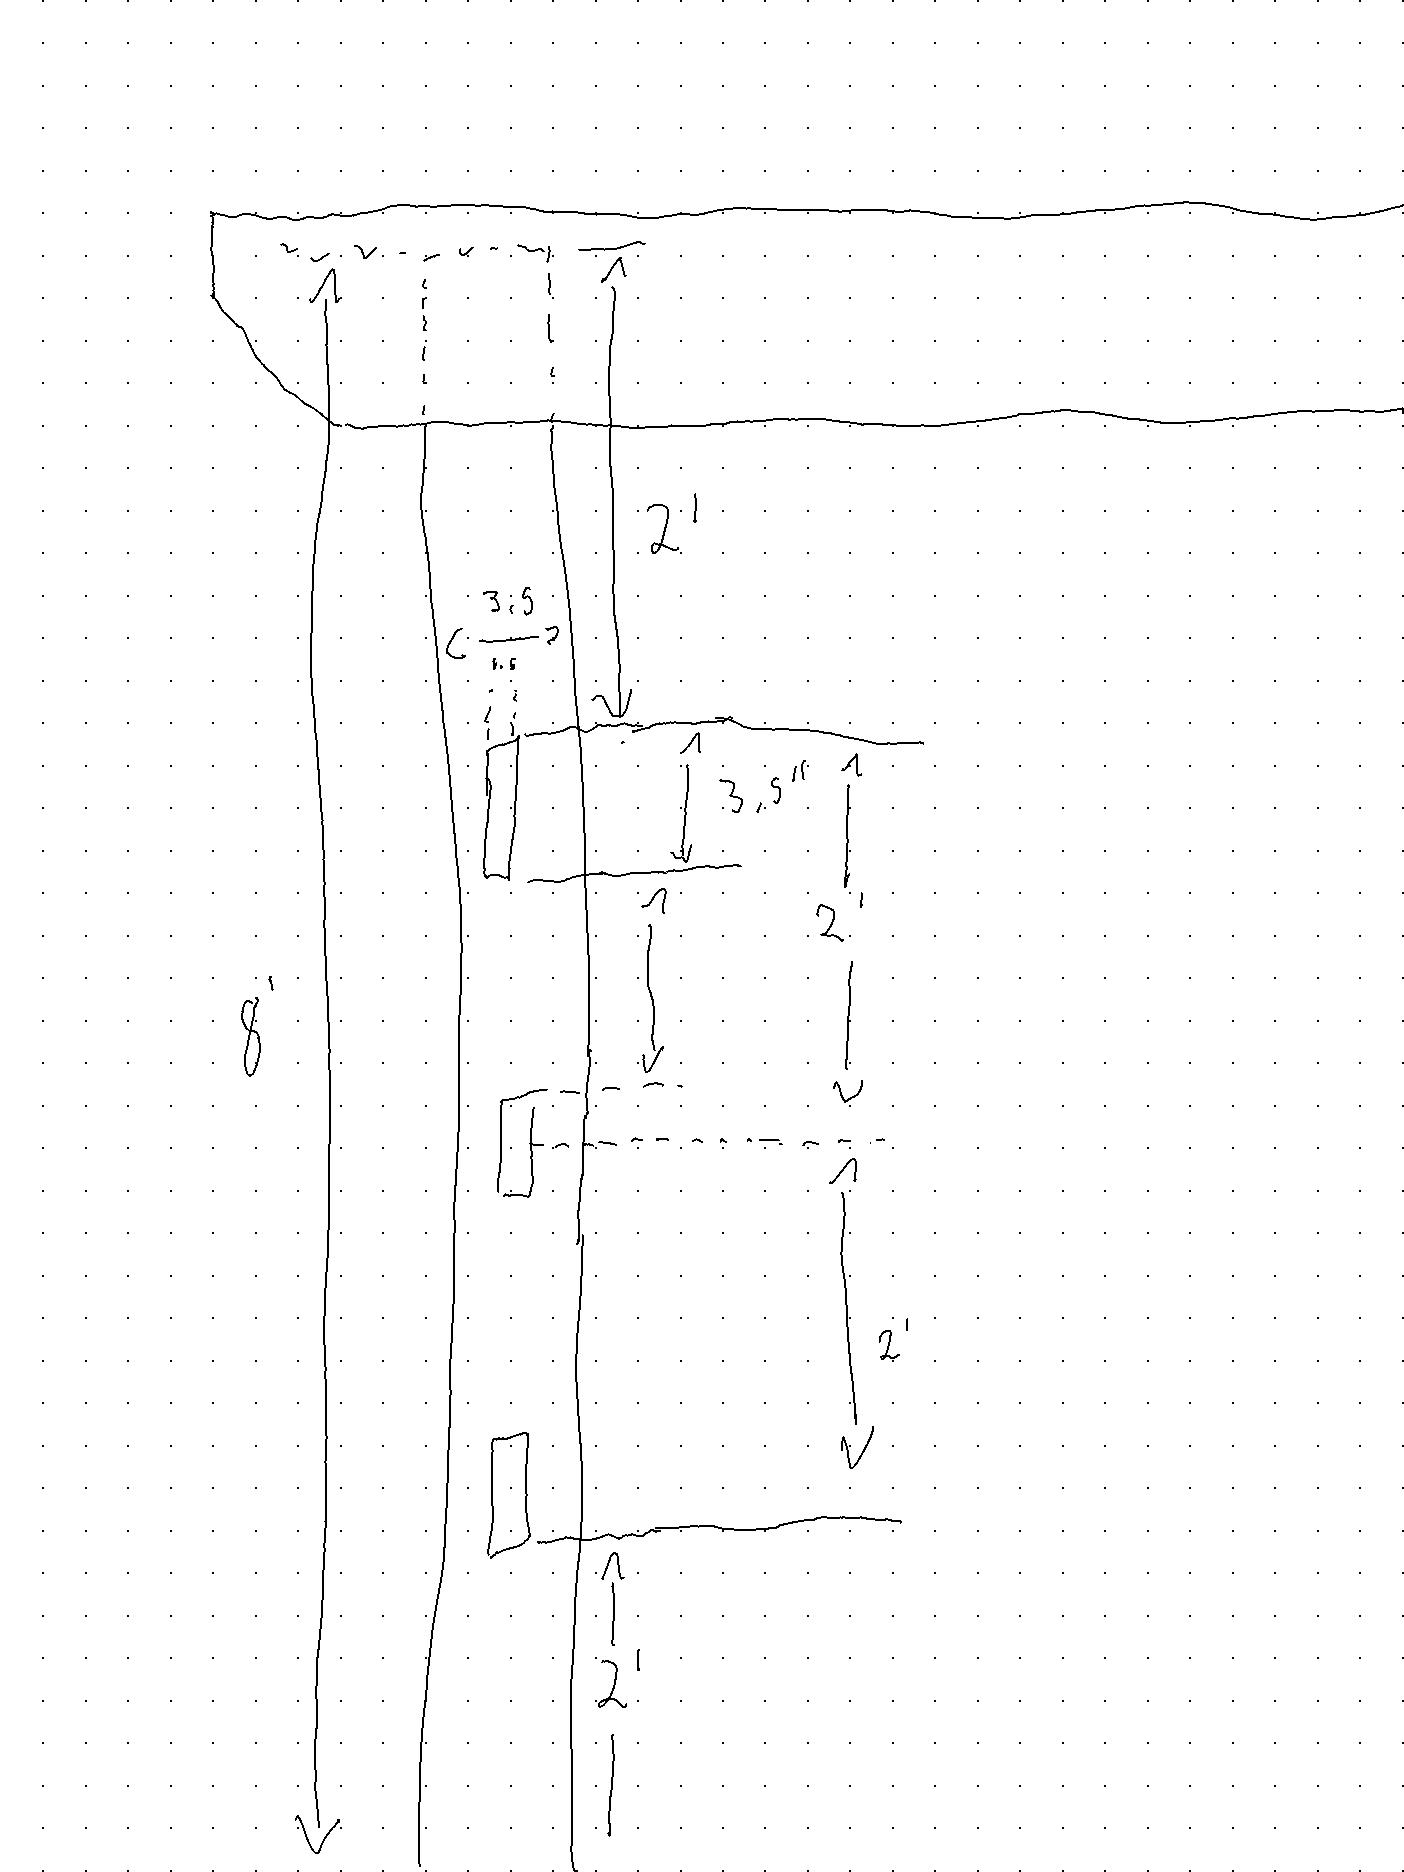 2'
3.5
1.5
3.5"
2'
8'
2'
2'